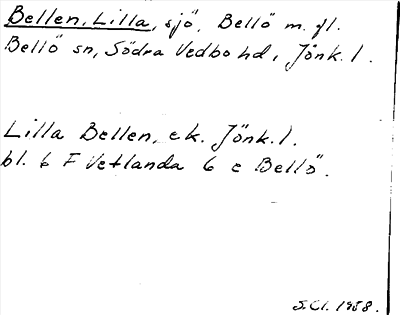 Bellen, Lilla, sjö, Bellö m. fl.
Bellö sn, Södra Vedbo hd, Jönk. l.
Lilla Bellen, ek. Jönk. l.
bl. 6 F Vetlanda 6 e Bellö.
S.Cl. 1958.